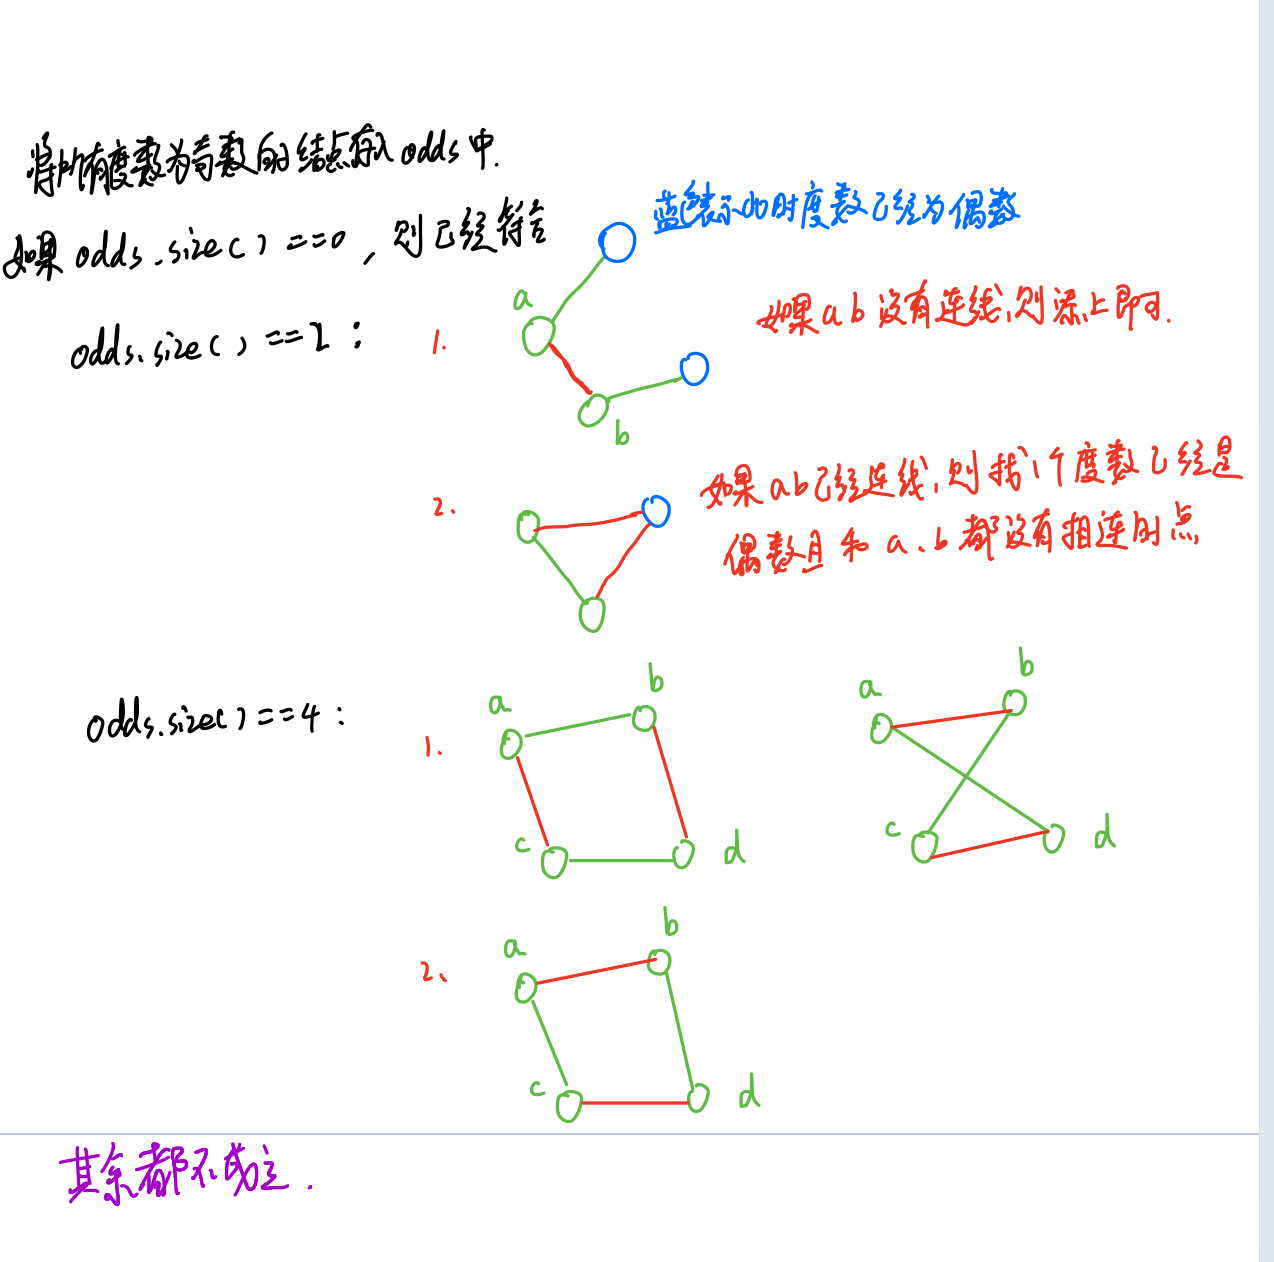 将所有度数为奇数的结点存入odds中.
如果 odds.size() ==0, 则已经符合
蓝色表示此时度数已经为偶数
odds.size() ==2:
1.
a
b
如果ab没有连线,则添上即可.
2.
如果ab已经连线,则找1个度数已经是
偶数且和a.b都没有相连的点
odds.size()==4:
1.
a
b
c
d
a
b
c
d
2、
a
b
c
d
其余都不成立.